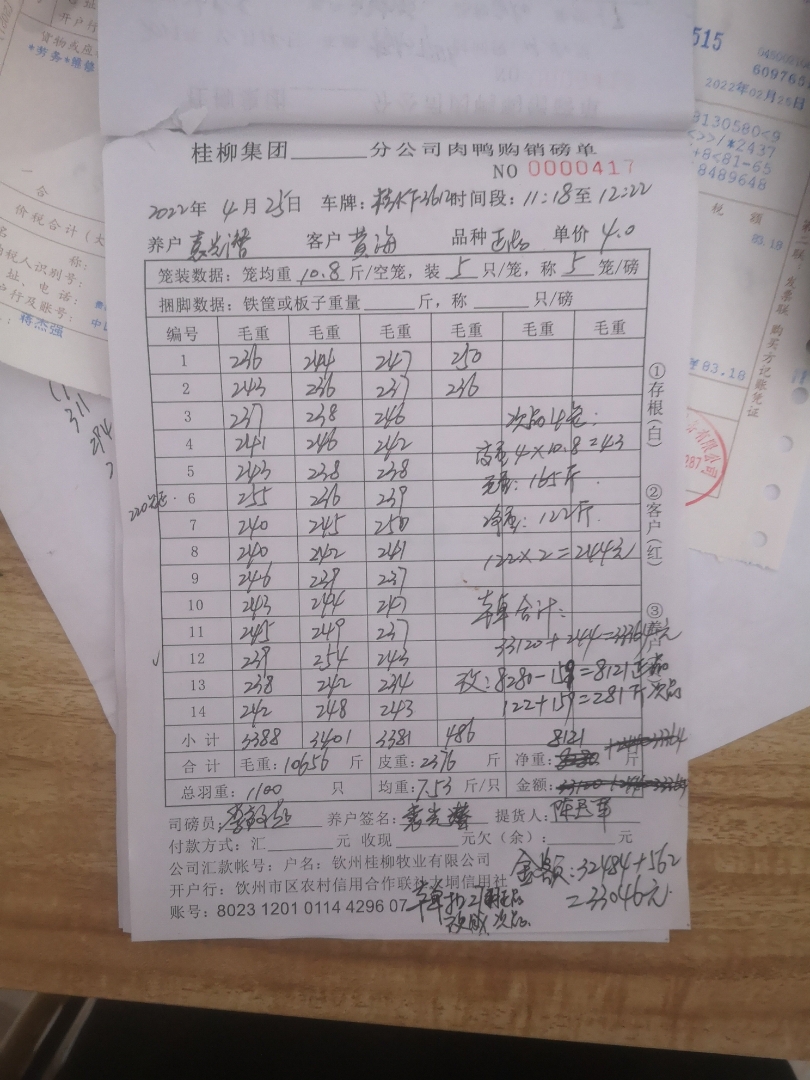 桂柳集团______分公司肉鸭购销磅单
NO 0000417
2022年 4月 25日 车牌: 时间段: 11:18至 12:22
养户 客户 黄海 品种 正品 单价 4.0
笼装数据: 笼均重 10.8 斤/空笼, 装 5 只/笼, 称 5 笼/磅
捆脚数据: 铁筐或板子重量______斤, 称______只/磅
编号 毛重 毛重 毛重 毛重 毛重 毛重
1 236 244 247 250
2 243 236 237 236
3 237 238 246
4 241 246 242
5 243 238 238
6 255 236 239
7 240 245 250
8 240 242 241
9 246 239 237
10 243 244 247
11 245 249 237
12 239 254 243
13 238 242 234
14 242 248 243
小计 3388 3401 3381 486
合计 毛重: 10656 斤 皮重: 2376 斤 净重: 8121 斤
总羽重: 1100 只 均重: 7.53 斤/只 金额:
4×10.8=43
毛重: 165斤
净重: 122斤
122×2=244元
车单合计:
33120+244=33364元
改: 8280-159=8121正品
122+159=281斤次品
司磅员: 养户签名: 提货人:
付款方式: 汇______元 收现______元欠(余):______元
公司汇款帐号: 户名: 钦州桂柳牧业有限公司
开户行: 钦州市区农村信用合作联社大垌信用社
账号: 8023 1201 0114 4296 07
金额: 32484+562
=33046元
改成次品
①存根(白)
②客户(红)
515
609765
2022年02月25日
8130580<9
>>/*2437
+8<81-65
8489648
税 额
83.18
¥83.18
第二联 发票联 购买方记账凭证
287
开户行
*劳务*维修
合
价税合计(大
名 称:
纳税人识别号:
址、电话:
户行及账号:
蒋杰强
311
284